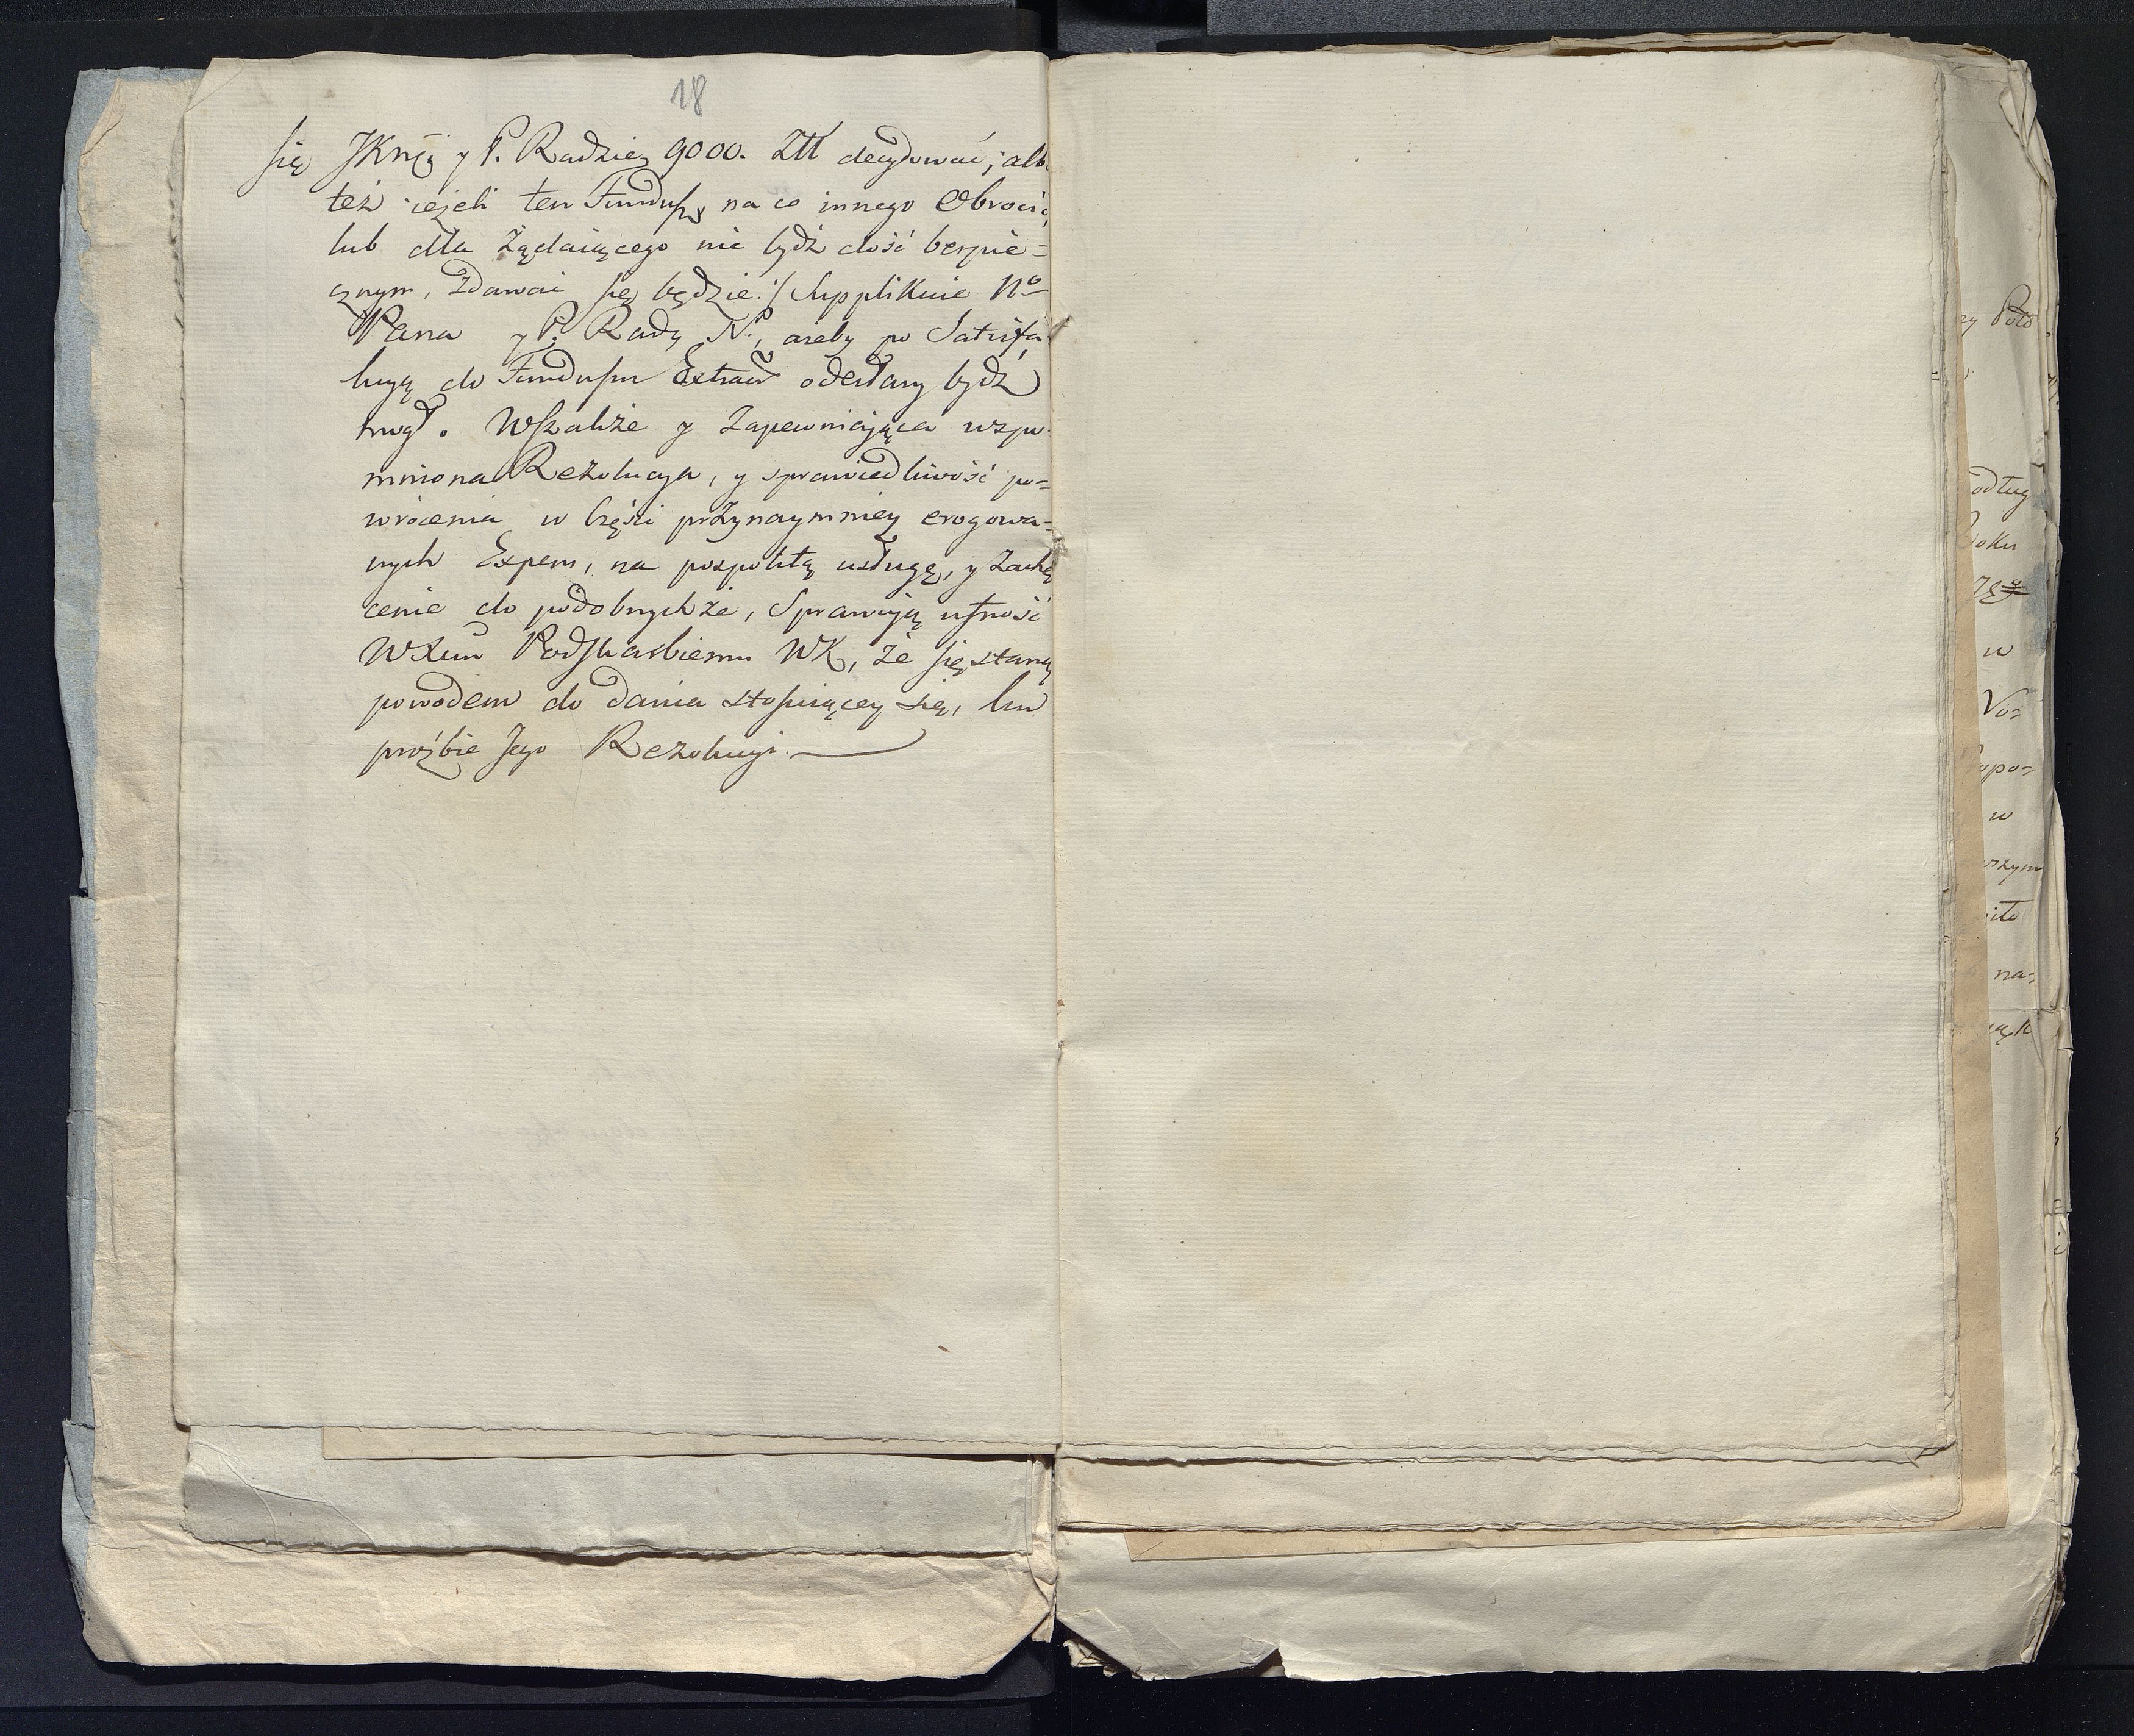 18
się JKmći y P. Radzie 9000. Złł decydować; alb
też ieżeli ten Fundusz na co innego obrocić,
lub dla żądaiącego nie bydź dość bespie=
cznym, zdawać się będzie./ Supplikuie Nº
Pana y P. Rady N., ażeby po Satisfa
kcyą do Funduszu Extraord odesłany bydź
mogł. Wszakże y zapewniająca wzpo
mniona Rezolucya, y sprawiedliwość po=
wrócenia w części przynaymniey erogowa=
nych Expens, na pospolitą usługę, y zachę
cenie do podobnychże, sprawują ufność
WXmu Podskarbiemu WK, że się staną
powodem do dania stosuiącey się, ku
proźbie Jego Rezolucyi.
ey Potr
odług
oku
w
Vo=
opo=
w
rzym
iło
na=